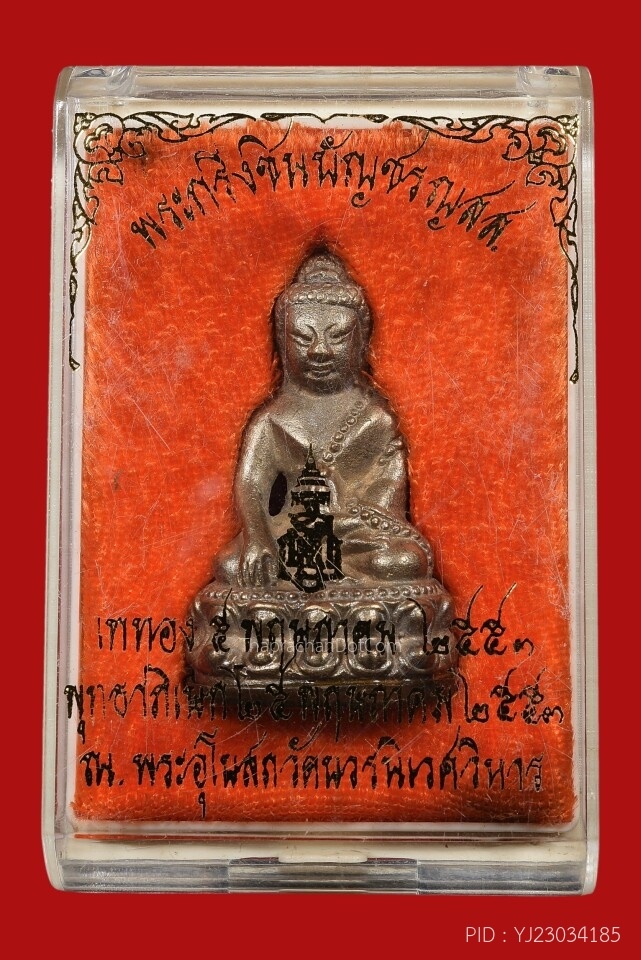 พระกริ่งชินบัญชรญสส.
เททอง ๕ พฤษภาคม ๒๕๕๓
พุทธาภิเษก ๒๕ พฤษภาคม ๒๕๕๓
ณ. พระอุโบสถวัดบวรนิเวศวิหาร
PID : YJ23034185